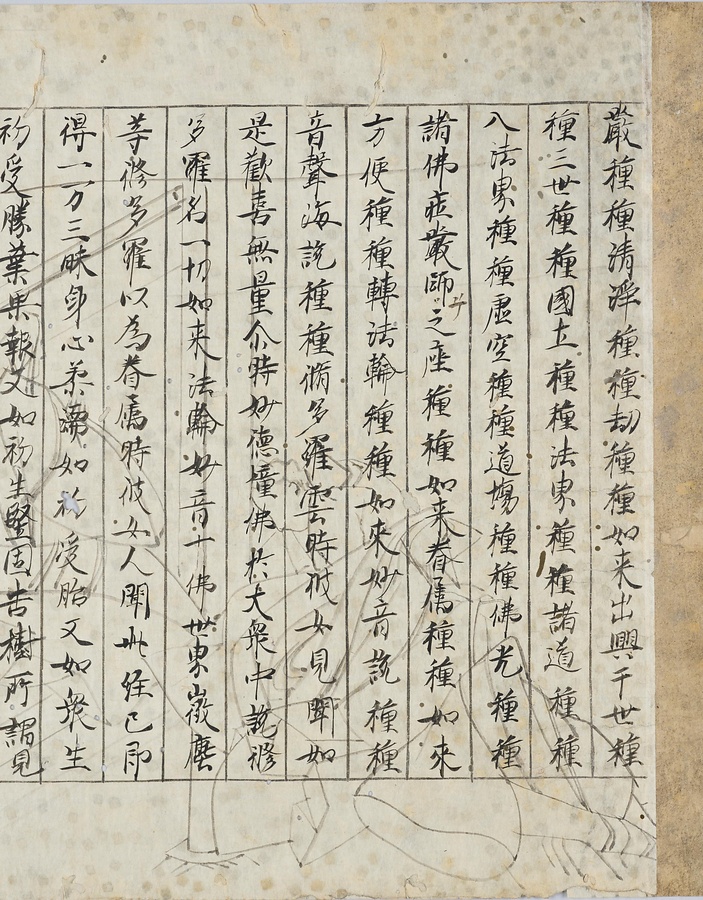 嚴種種清淨種種劫種種如来出興于世種
種三世種種國土種種法界種種諸道種種
入法界種種虚空種種道場種種佛光種種
諸佛莊嚴師子之座種種如来眷属種種如来
方便種種轉法輪種種如来妙音説種種
音聲海説種種脩多羅雲時彼女見聞如
是歡喜無量尒時妙德幢佛於大衆中説修
多羅名一切如来法輪妙音十佛世界微塵
等修多羅以為眷属時彼女人聞此經已即
得一万三昧身心柔濡如初受胎又如衆生
初受勝葉果報又如初生堅固吉樹所謂見